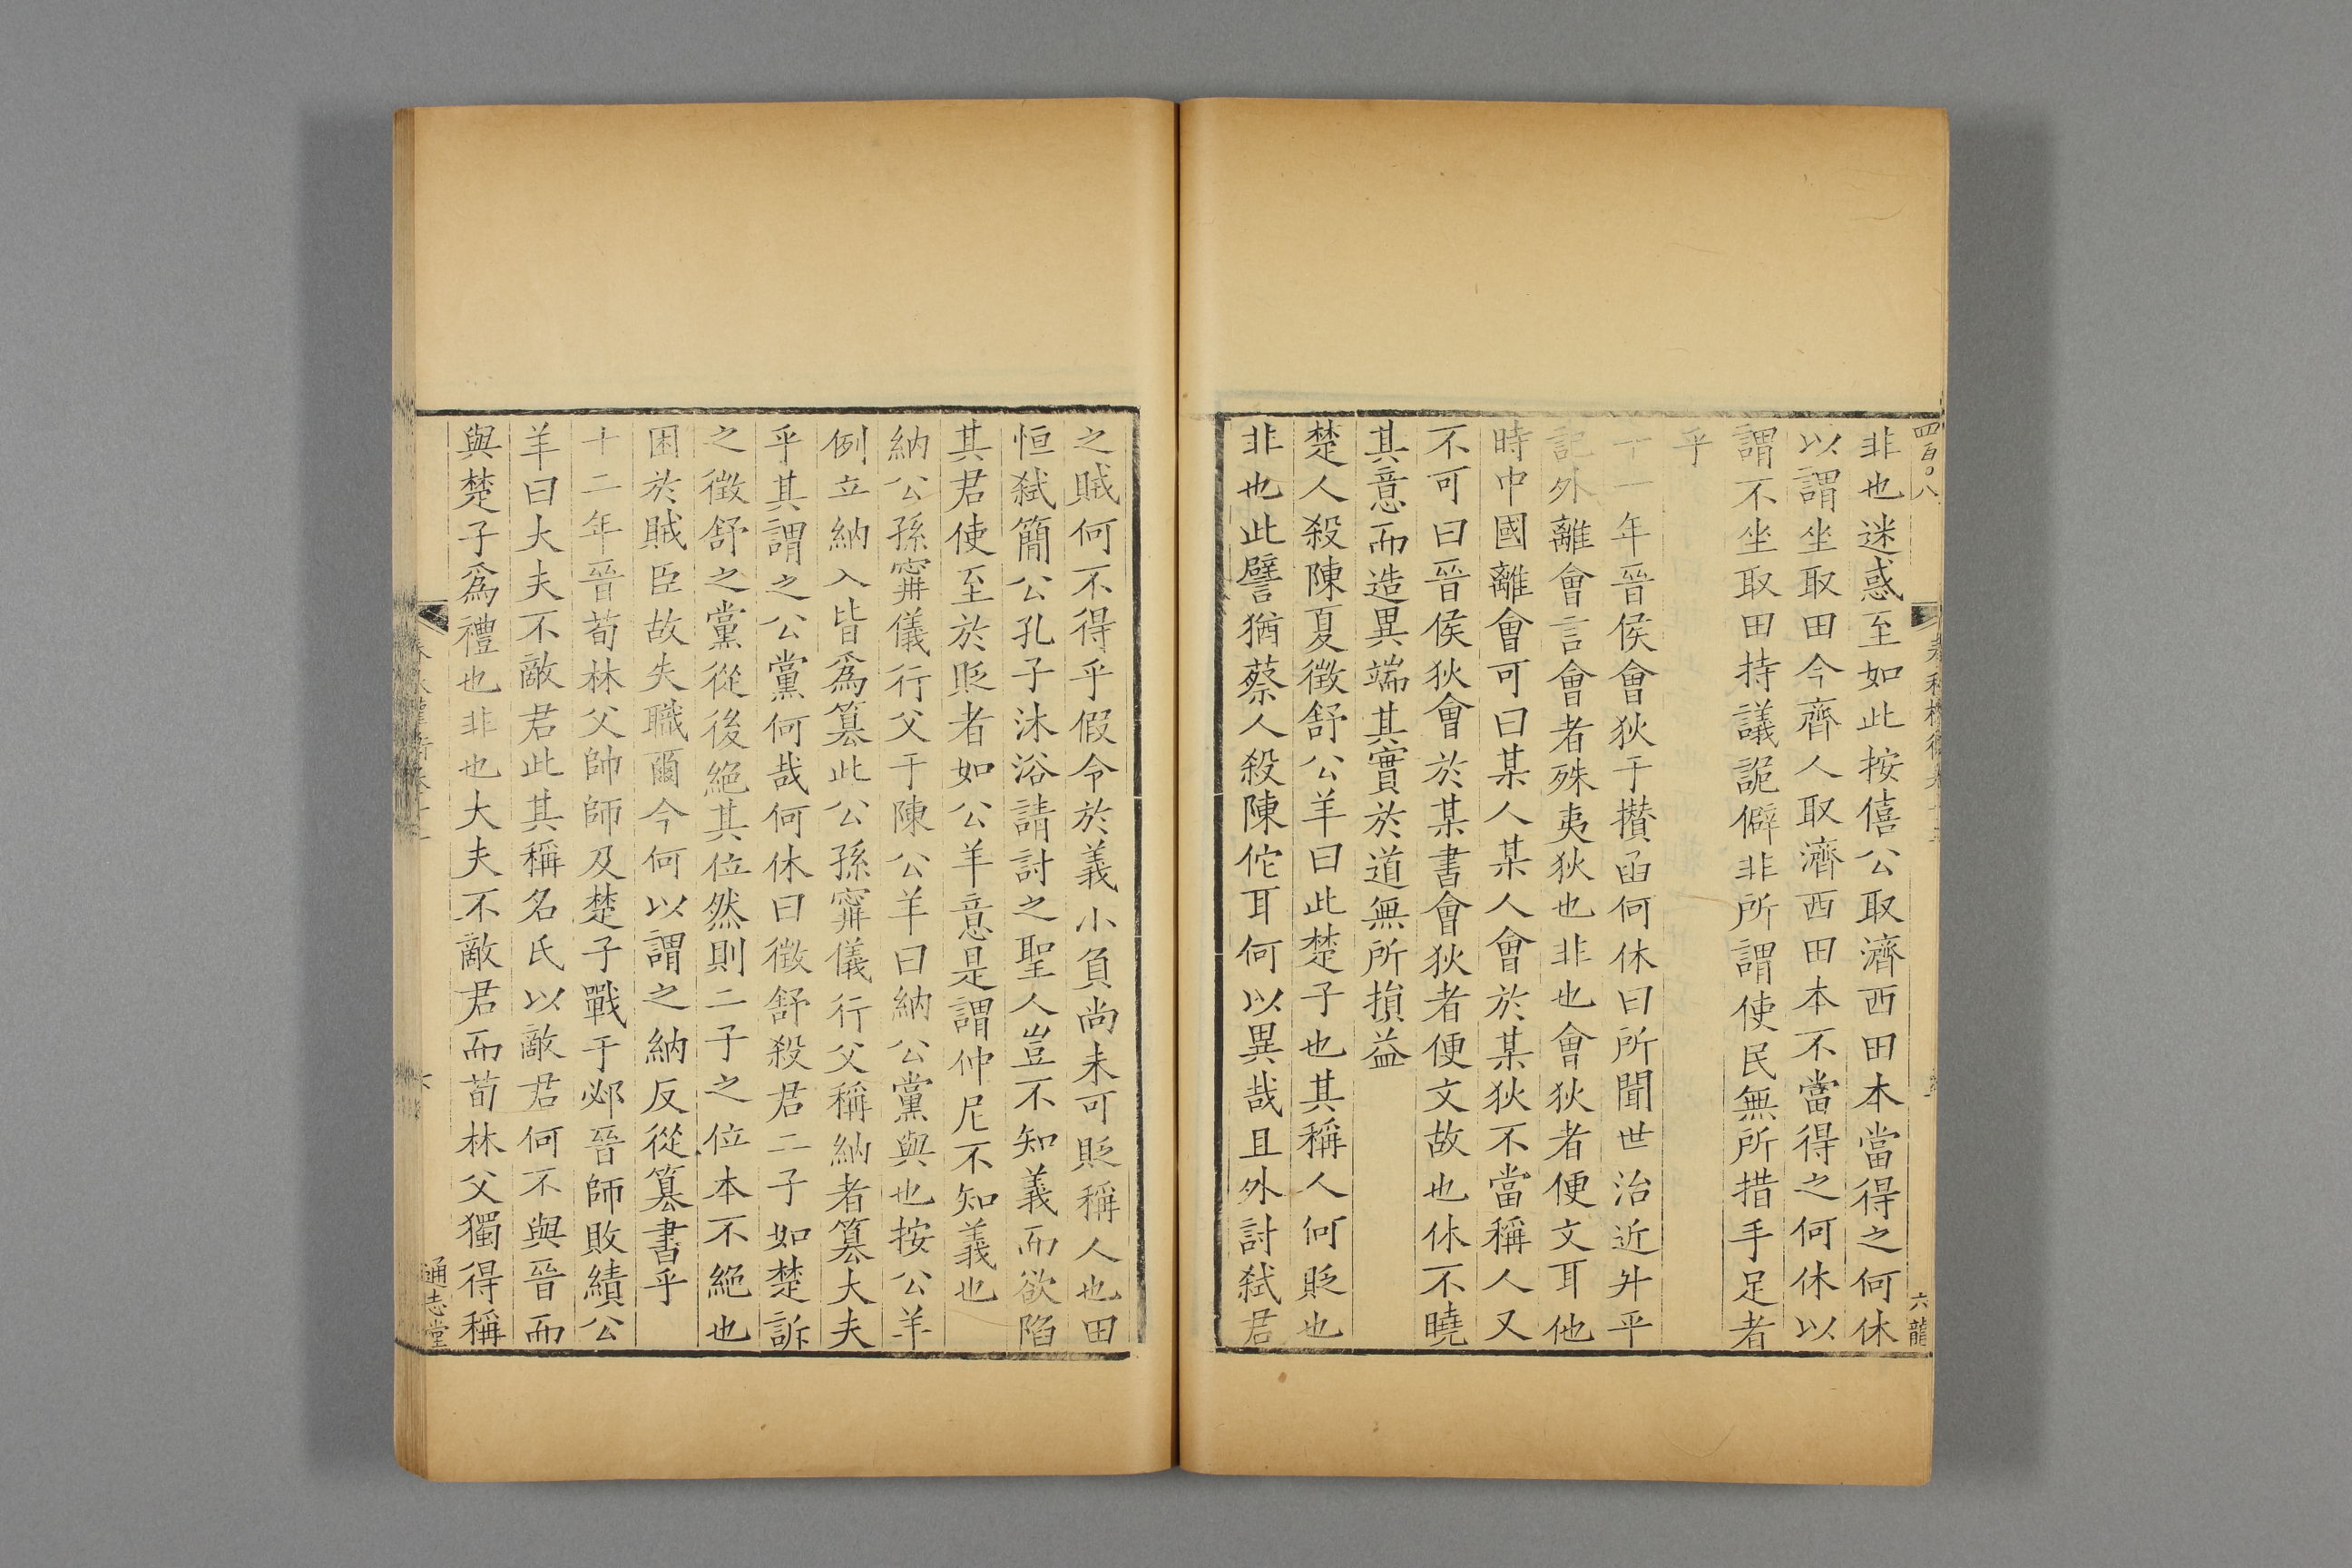 四百〇八
六龍
非也迷惑至如此按僖公取濟西田本當得之何休
以謂坐取田今齊人取濟西田本不當得之何休以
謂不坐取田持議詭僻非所謂使民無所措手足者
乎
十一年晉侯會狄于攢函何休曰所聞世治近升平
記外離會言會者殊夷狄也非也會狄者便文耳他
時中國離會可曰某人某人會於某狄不當稱人又
不可曰晉侯狄會於某書會狄者便文故也休不曉
其意而造異端其實於道無所損益
楚人殺陳夏徵舒公羊曰此楚子也其稱人何貶也
非也此譬猶蔡人殺陳佗耳何以異哉且外討弑君
之賊何不得乎假令於義小負尚未可貶稱人也田
恒弑簡公孔子沐浴請討之聖人豈不知義而欲陷
其君使至於貶者如公羊意是謂仲尼不知義也
納公孫寗儀行父于陳公羊曰納公黨與也按公羊
例立納入皆為篡此公孫寗儀行父稱納者篡大夫
乎其謂之公黨何哉何休曰徵舒殺君二子如楚訴
之徵舒之黨從後絕其位然則二子之位本不絕也
困於賊臣故失職爾今何以謂之納反從篡書乎
十二年晉荀林父帥師及楚子戰于邲晉師敗績公
羊曰大夫不敵君此其稱名氏以敵君何不與晉而
與楚子為禮也非也大夫不敵君而荀林父獨得稱
通志堂